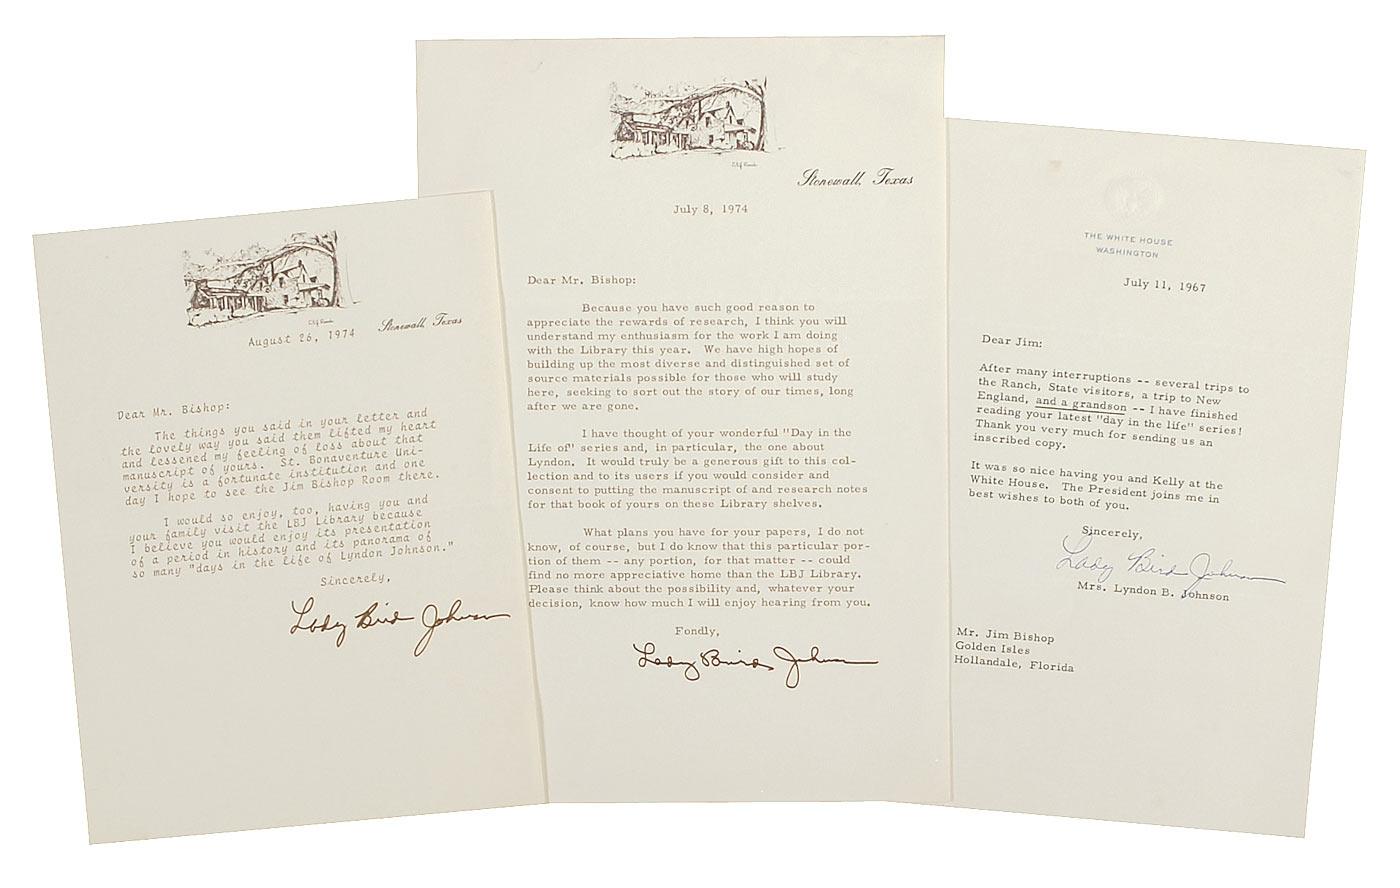 August 26, 1974
Stonewall, Texas
Dear Mr. Bishop:
The things you said in your letter and
the lovely way you said them lifted my heart
and lessened my feeling of loss about that
manuscript of yours. St. Bonaventure Uni-
versity is a fortunate institution and one
day I hope to see the Jim Bishop Room there.
I would so enjoy, too, having you and
your family visit the LBJ Library because
I believe you would enjoy its presentation
of a period in history and its panorama of
so many "days in the life of Lyndon Johnson."
Sincerely,
Lady Bird Johnson
Stonewall, Texas
July 8, 1974
Dear Mr. Bishop:
Because you have such good reason to
appreciate the rewards of research, I think you will
understand my enthusiasm for the work I am doing
with the Library this year. We have high hopes of
building up the most diverse and distinguished set of
source materials possible for those who will study
here, seeking to sort out the story of our times, long
after we are gone.
I have thought of your wonderful "Day in the
Life of" series and, in particular, the one about
Lyndon. It would truly be a generous gift to this col-
lection and to its users if you would consider and
consent to putting the manuscript of and research notes
for that book of yours on these Library shelves.
What plans you have for your papers, I do not
know, of course, but I do know that this particular por-
tion of them -- any portion, for that matter -- could
find no more appreciative home than the LBJ Library.
Please think about the possibility and, whatever your
decision, know how much I will enjoy hearing from you.
Fondly,
Lady Bird Johnson
THE WHITE HOUSE
WASHINGTON
July 11, 1967
Dear Jim:
After many interruptions -- several trips to
the Ranch, State visitors, a trip to New
England, and a grandson -- I have finished
reading your latest "day in the life" series!
Thank you very much for sending us an
inscribed copy.
It was so nice having you and Kelly at the
White House. The President joins me in
best wishes to both of you.
Sincerely,
Lady Bird Johnson
Mrs. Lyndon B. Johnson
Mr. Jim Bishop
Golden Isles
Hollandale, Florida